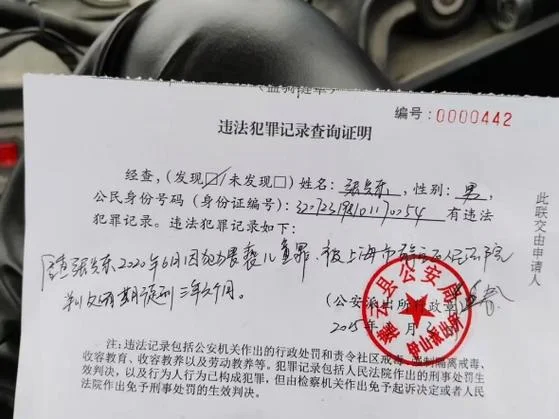 编号：0000442
违法犯罪记录查询证明
经查，（发现☑/未发现□）姓名：张 东，性别：男，
公民身份号码（身份证编号）： 有违法
犯罪记录。违法犯罪记录如下：
张 东2020年6月因犯猥亵儿童罪，被上海市 人民法院
判处有期徒刑三年六个月。
（公安派出所 章）
2025年 月
灌云县公安局
伊山派出所
注：违法记录包括公安机关作出的行政处罚和责令社区戒毒、强制隔离戒毒、
收容教育、收容教养以及劳动教养等。犯罪记录包括人民法院作出的刑事处罚生
效判决，以及行为人行为已构成犯罪，但由检察机关作出免予起诉决定或者人民
法院作出免予刑事处罚的生效判决。
此联交由申请人